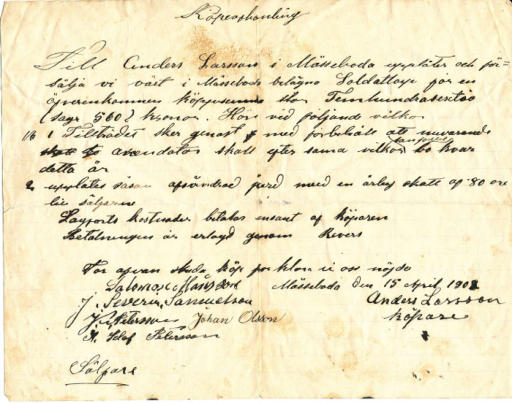 Köpeafhandling
Till Anders Larsson i Mösseboda upplåter och för-
sälja vi vårt i Mösseboda belägna Soldattorp för en
öfverenkommen köpesumma stor Femhundrasextio
(säger 560) kronor. Härvid följande vilkor
1 Tillträdet sker genast med förbehåll att nuvarande
skall arendator skall efter sama vilkor bo kvar
detta år
2 upplåtes såsom afsöndrad jord med en årlig skatt af 80 öre
till säljarne
Lagfarts kostnader betalas ensamt af köparen
Betalningen är erlagd genom Revers
För ofvan stående köp förklara vi oss nöjda
Mösseboda den 15 April 1902
J. Severin Samuelson
Anders Larsson
Johan Olsson
köpare
Petersson
Säljare